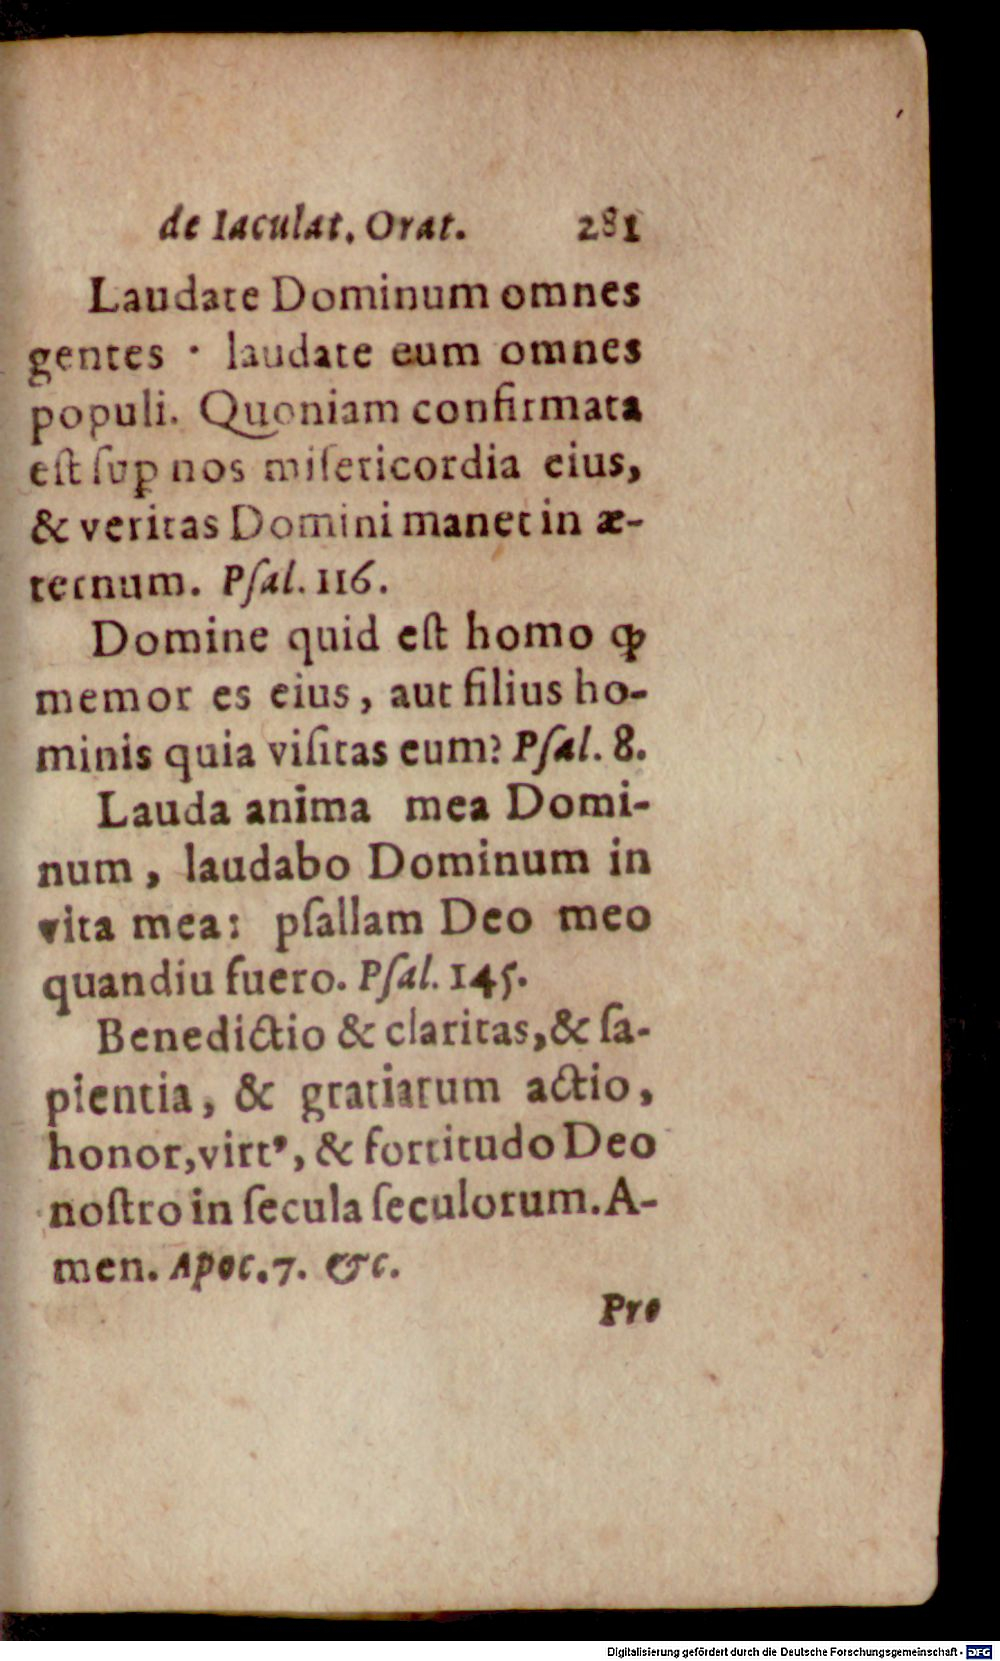 de Iaculat. Orat. 281
Laudate Dominum omnes
gentes · laudate eum omnes
populi. Quoniam confirmata
eſt ſuꝑ nos miſericordia eius,
& veritas Domini manet in æ-
ternum. Pſal. 116.
Domine quid eſt homo ꝙ
memor es eius, aut filius ho-
minis quia viſitas eum? Pſal. 8.
Lauda anima mea Domi-
num, laudabo Dominum in
vita mea: pſallam Deo meo
quandiu fuero. Pſal. 145.
Benedictio & claritas, & ſa-
pientia, & gratiarum actio,
honor, virtꝰ, & fortitudo Deo
noſtro in ſecula ſeculorum. A-
men. Apoc. 7. &c.
Pro
Digitalisierung gefördert durch die Deutsche Forschungsgemeinschaft - DFG